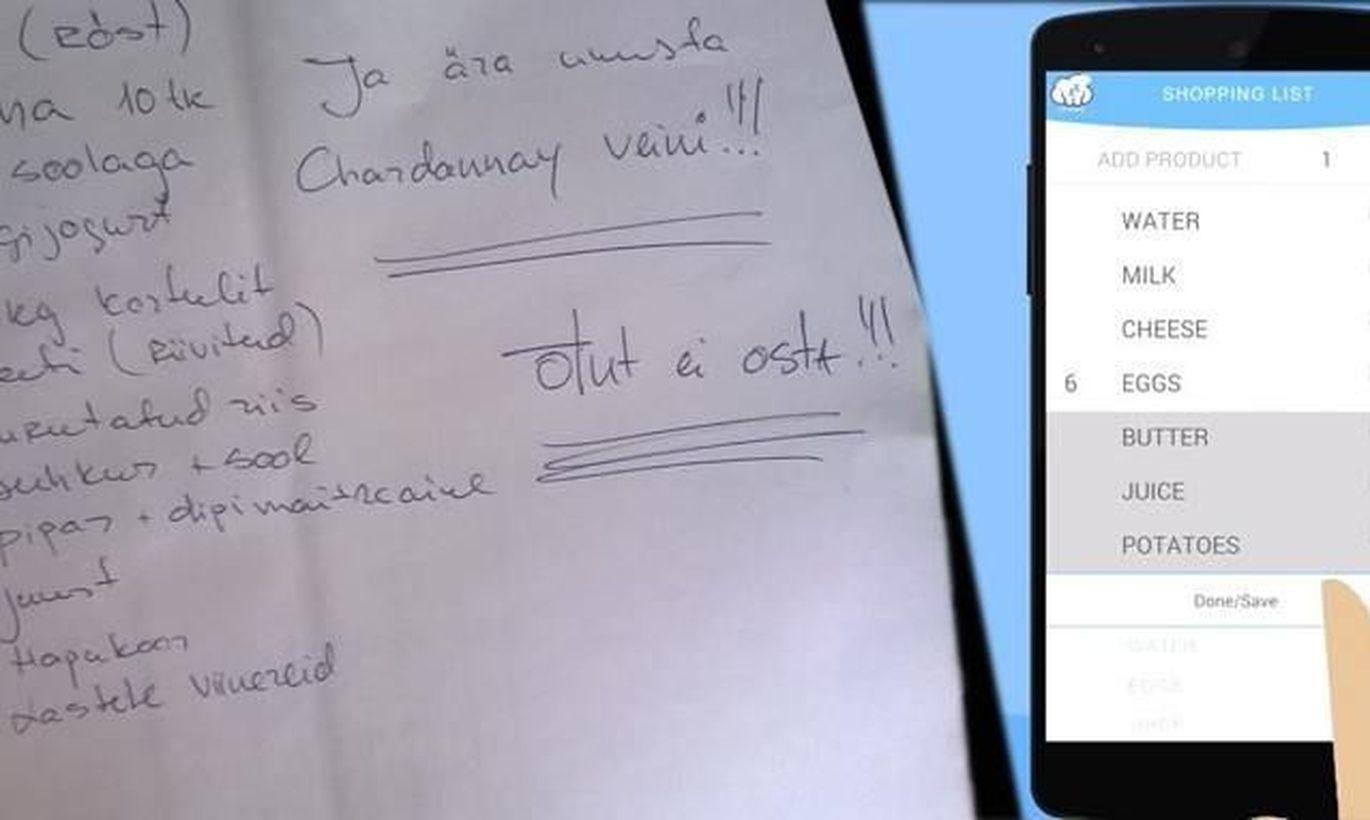 (Röst)
na 10 tk
soolaga
gijogurt
kg kartulit
(Riivitud)
riis
+ sool
pipar + dipimaitseaine
juust
Hapukoor
Lastele viinereid
Ja ära unusta
Chardonnay veini!!!
Õlut ei osta!!!
SHOPPING LIST
ADD PRODUCT 1
WATER
MILK
CHEESE
6 EGGS
BUTTER
JUICE
POTATOES
Done/Save
WATER
EGGS
JUICE